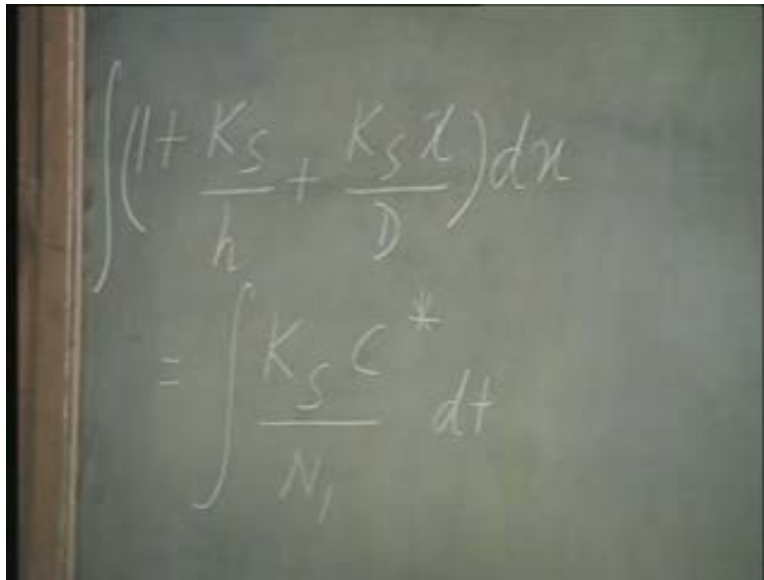 ∫(1 + K_S/h + K_S x/D) dx
= ∫ K_S C*/N_1 dt